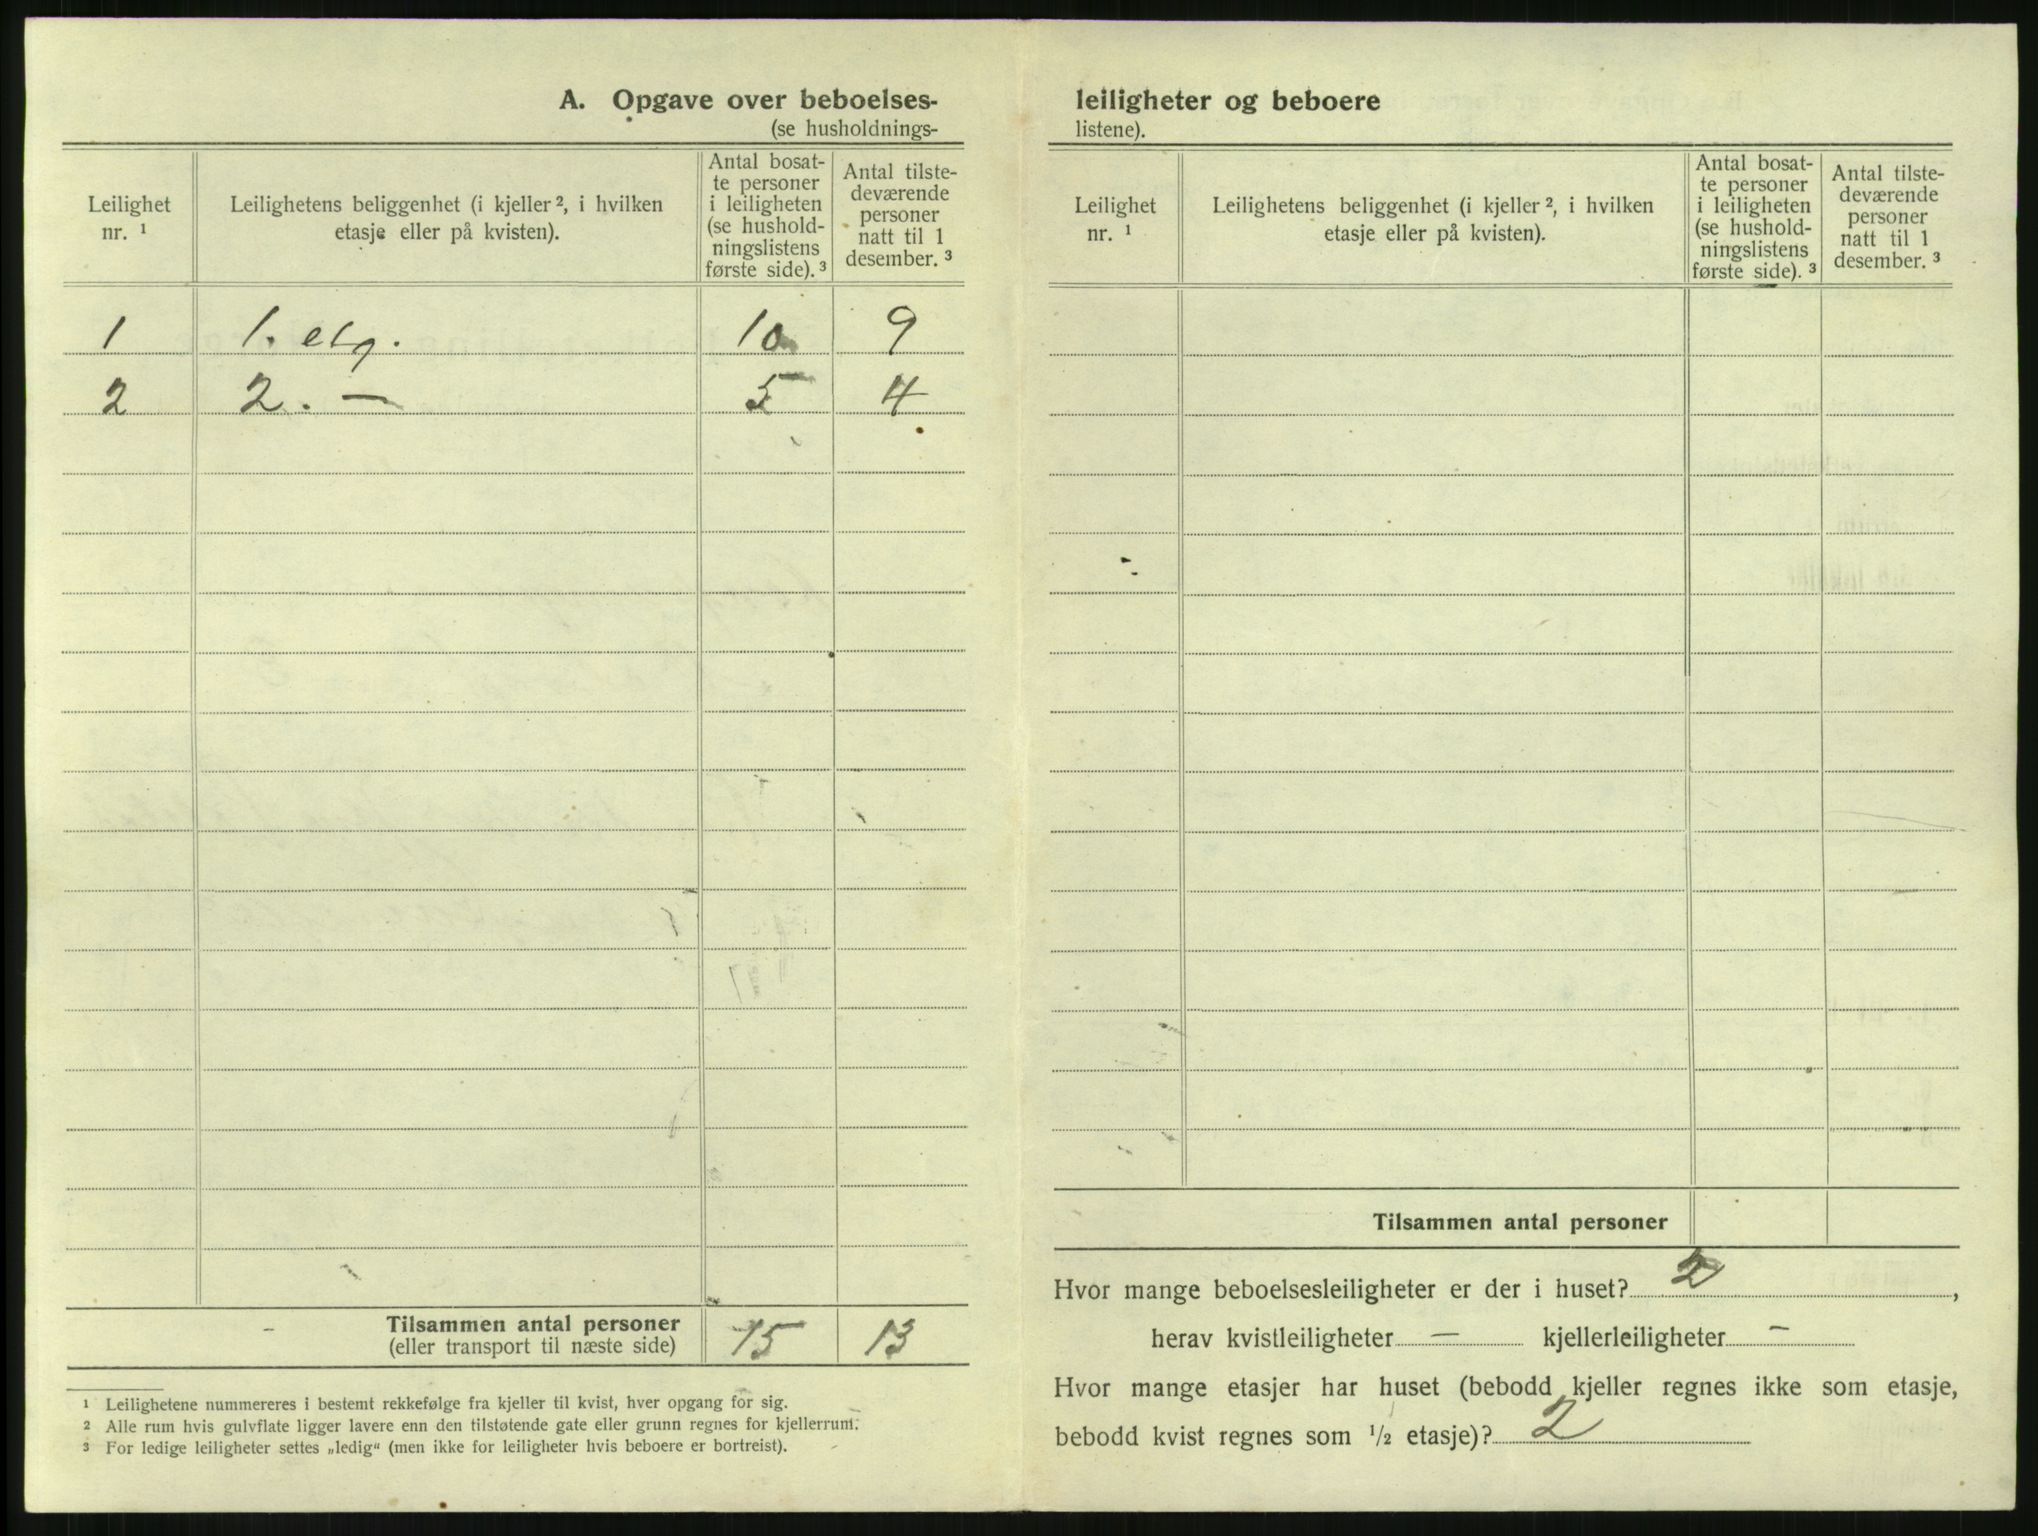 A. Opgave over beboelses-
(se husholdnings-
Leilighet nr. ¹
Leilighetens beliggenhet (i kjeller ², i hvilken etasje eller på kvisten).
Antal bosat-
te personer
i leiligheten
(se hushold-
ningslistens
første side). ³
Antal tilste-
deværende
personer
natt til 1
desember. ³
1 1. etg. 10 9
2 2. — 5 4
Tilsammen antal personer 15 13
(eller transport til næste side)
¹ Leilighetene nummereres i bestemt rekkefølge fra kjeller til kvist, hver opgang for sig.
² Alle rum hvis gulvflate ligger lavere enn den tilstøtende gate eller grunn regnes for kjellerrum.
³ For ledige leiligheter settes „ledig“ (men ikke for leiligheter hvis beboere er bortreist).
leiligheter og beboere
listene).
Leilighet nr. ¹
Leilighetens beliggenhet (i kjeller ², i hvilken etasje eller på kvisten).
Antal bosat-
te personer
i leiligheten
(se hushold-
ningslistens
første side). ³
Antal tilste-
deværende
personer
natt til 1
desember. ³
Tilsammen antal personer
Hvor mange beboelsesleiligheter er der i huset? 2,
herav kvistleiligheter — kjellerleiligheter —
Hvor mange etasjer har huset (bebodd kjeller regnes ikke som etasje,
bebodd kvist regnes som ½ etasje)? 2